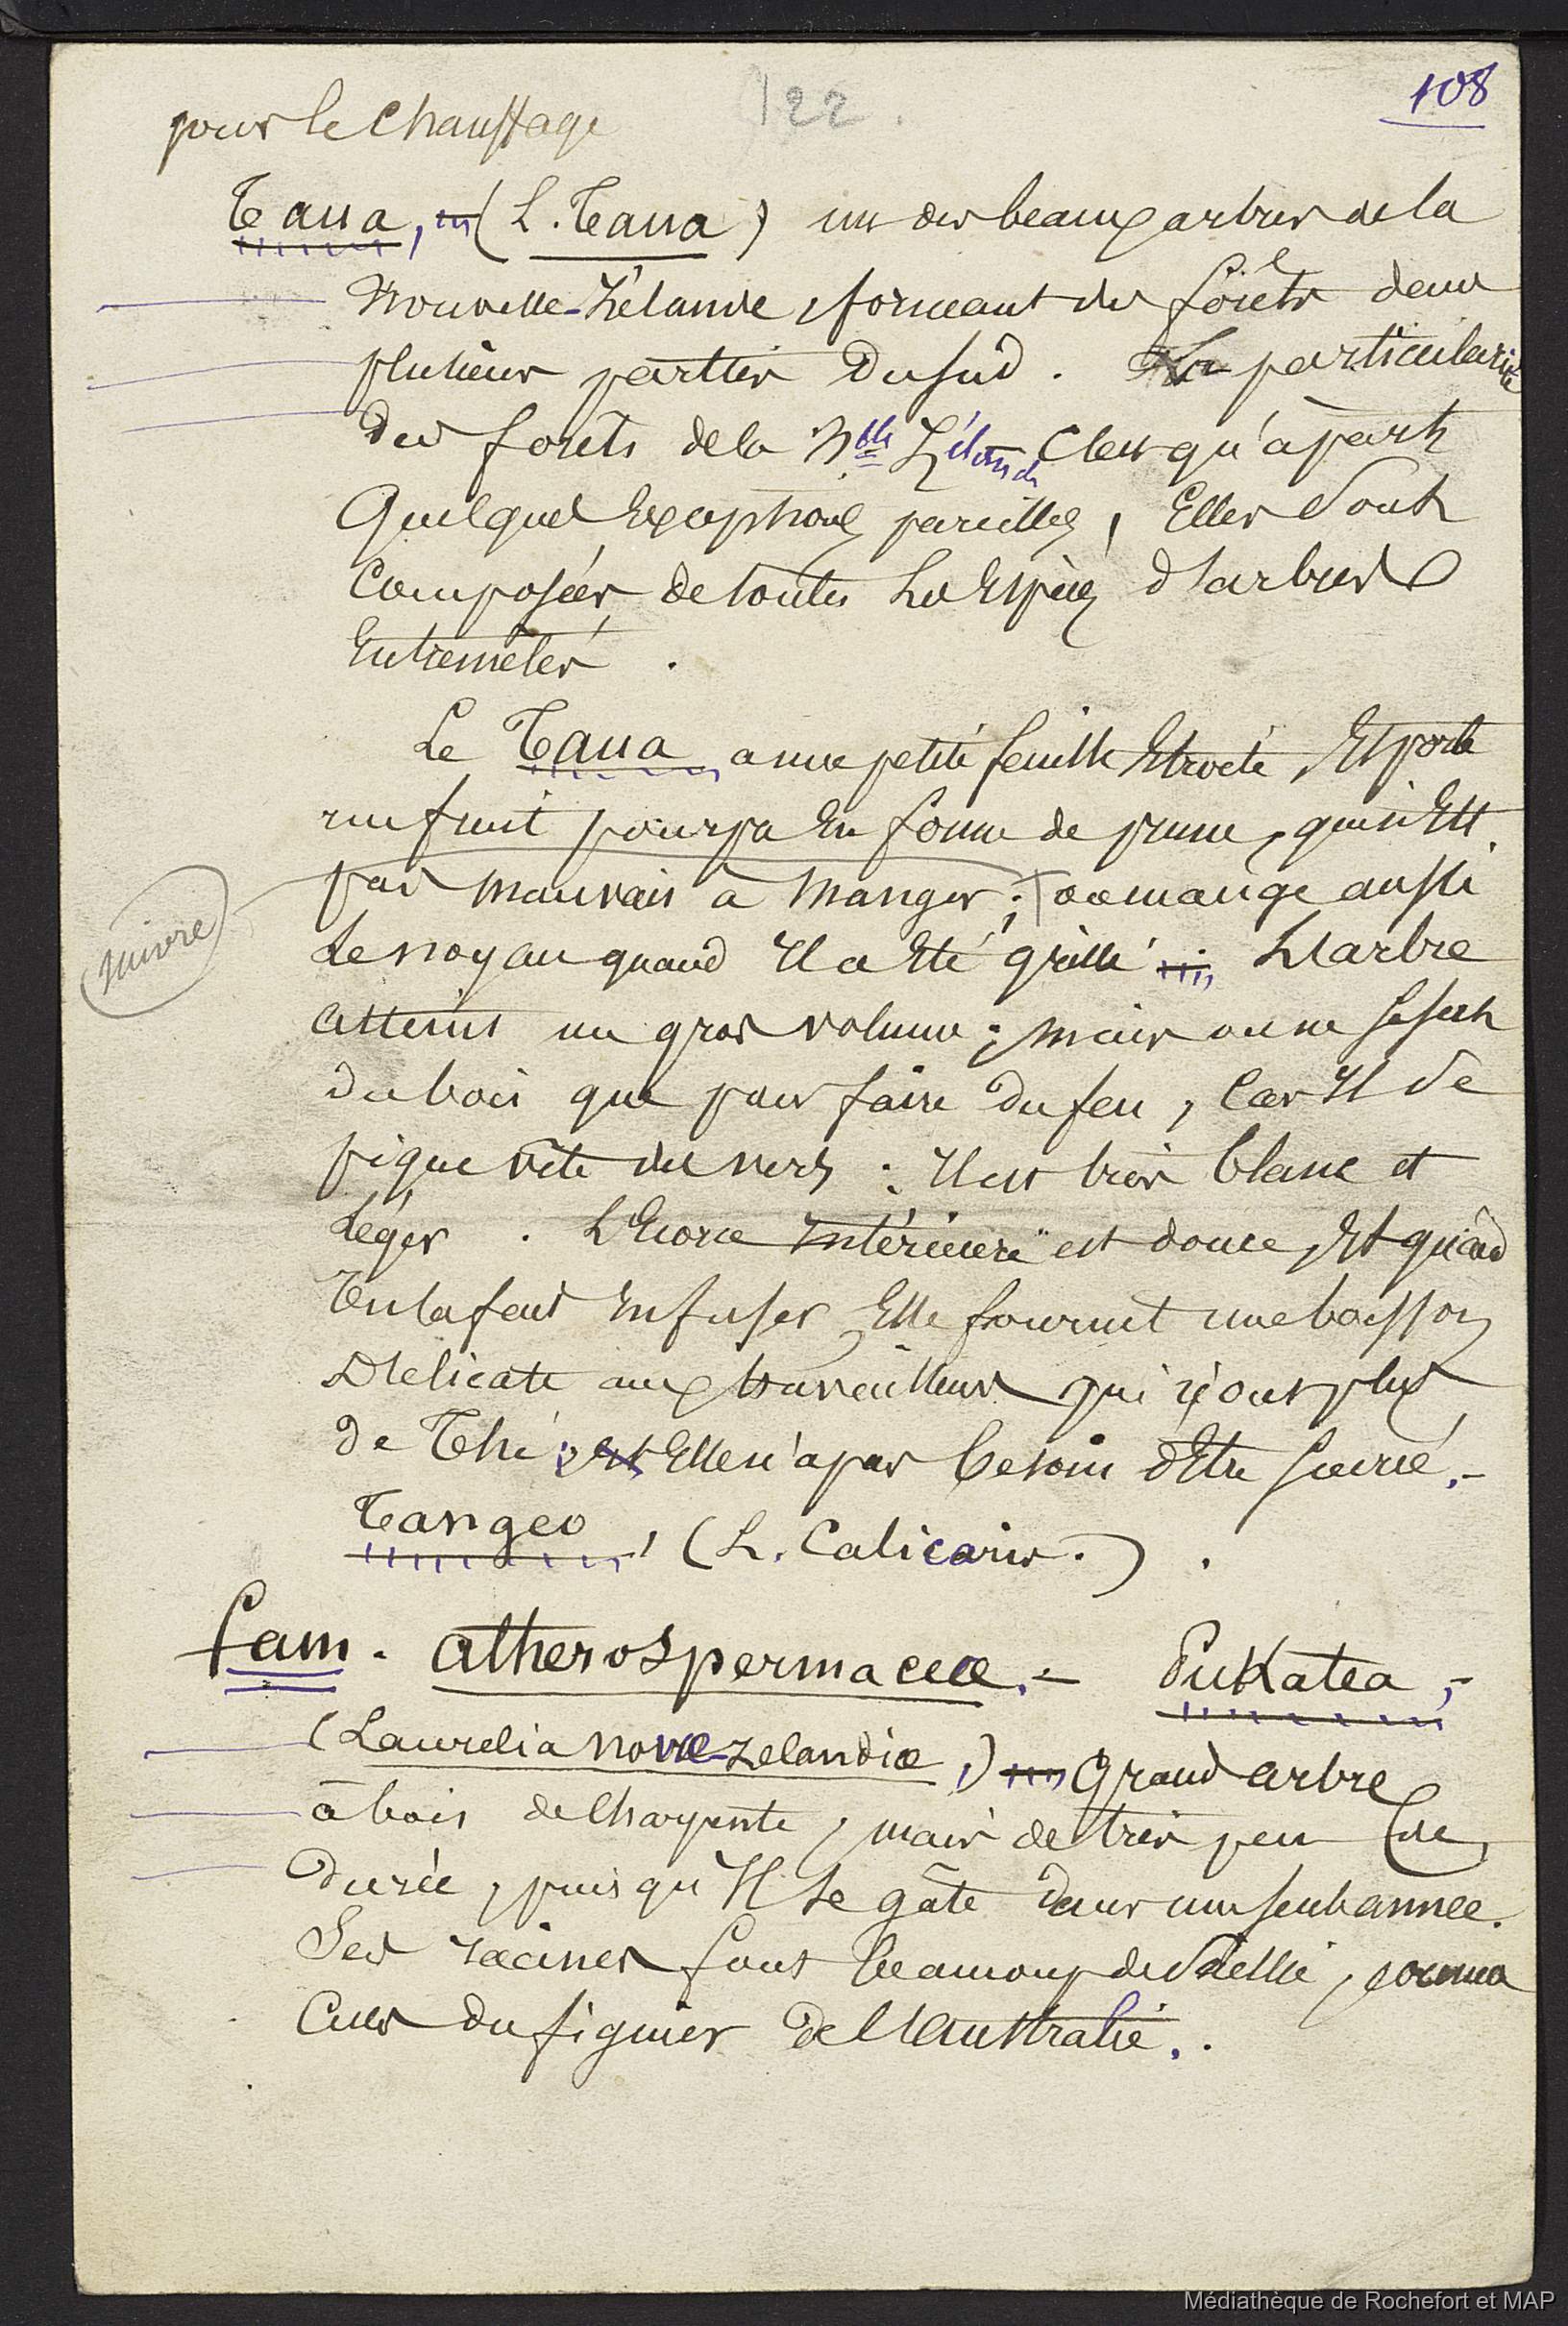 108
122.
pour le Chauffage
Taua, (L. Taua) un des beaux arbres de la
Nouvelle-Zélande, formant des forêts dans
plusieurs parties du sud. La particularité
des forêts de la Nlle Zélande C'est qu'à part
Quelques Exceptions pareilles, Elles Sont
Composées de toutes Les Espèces d'arbres
Entremêlés.
Le Taua a une petite feuille Etroite, Et porte
un fruit pourpre En forme de prune, qui n'Est
pas Mauvais à Manger; on mange aussi
Le noyau quand Il a Eté grillé. L'arbre
atteint un gros volume; Mais on ne se sert
du bois que pour faire du feu, Car Il se
pique vite des vers: Il est très blanc et
Léger. L'Ecorce Intérieure est douce, Et quand
on la fait Infuser, Elle fournit une boisson
Délicate aux travailleurs qui n'ont plus
de Thé; Elle n'a pas besoin d'Etre sucrée.-
suivre
Tangeo, (L. Calicaris.).
Fam. Atherospermaceæ.- Pukatea,-
(Laurelia novæ-zelandiæ,) Grand arbre
à bois de Charpente, mais de très peu de
Durée, puisqu'Il se gâte dans une seule année.
Ses racines font beaucoup de Saillie, comme
Celles du figuier de l'Australie..
Médiathèque de Rochefort et MAP